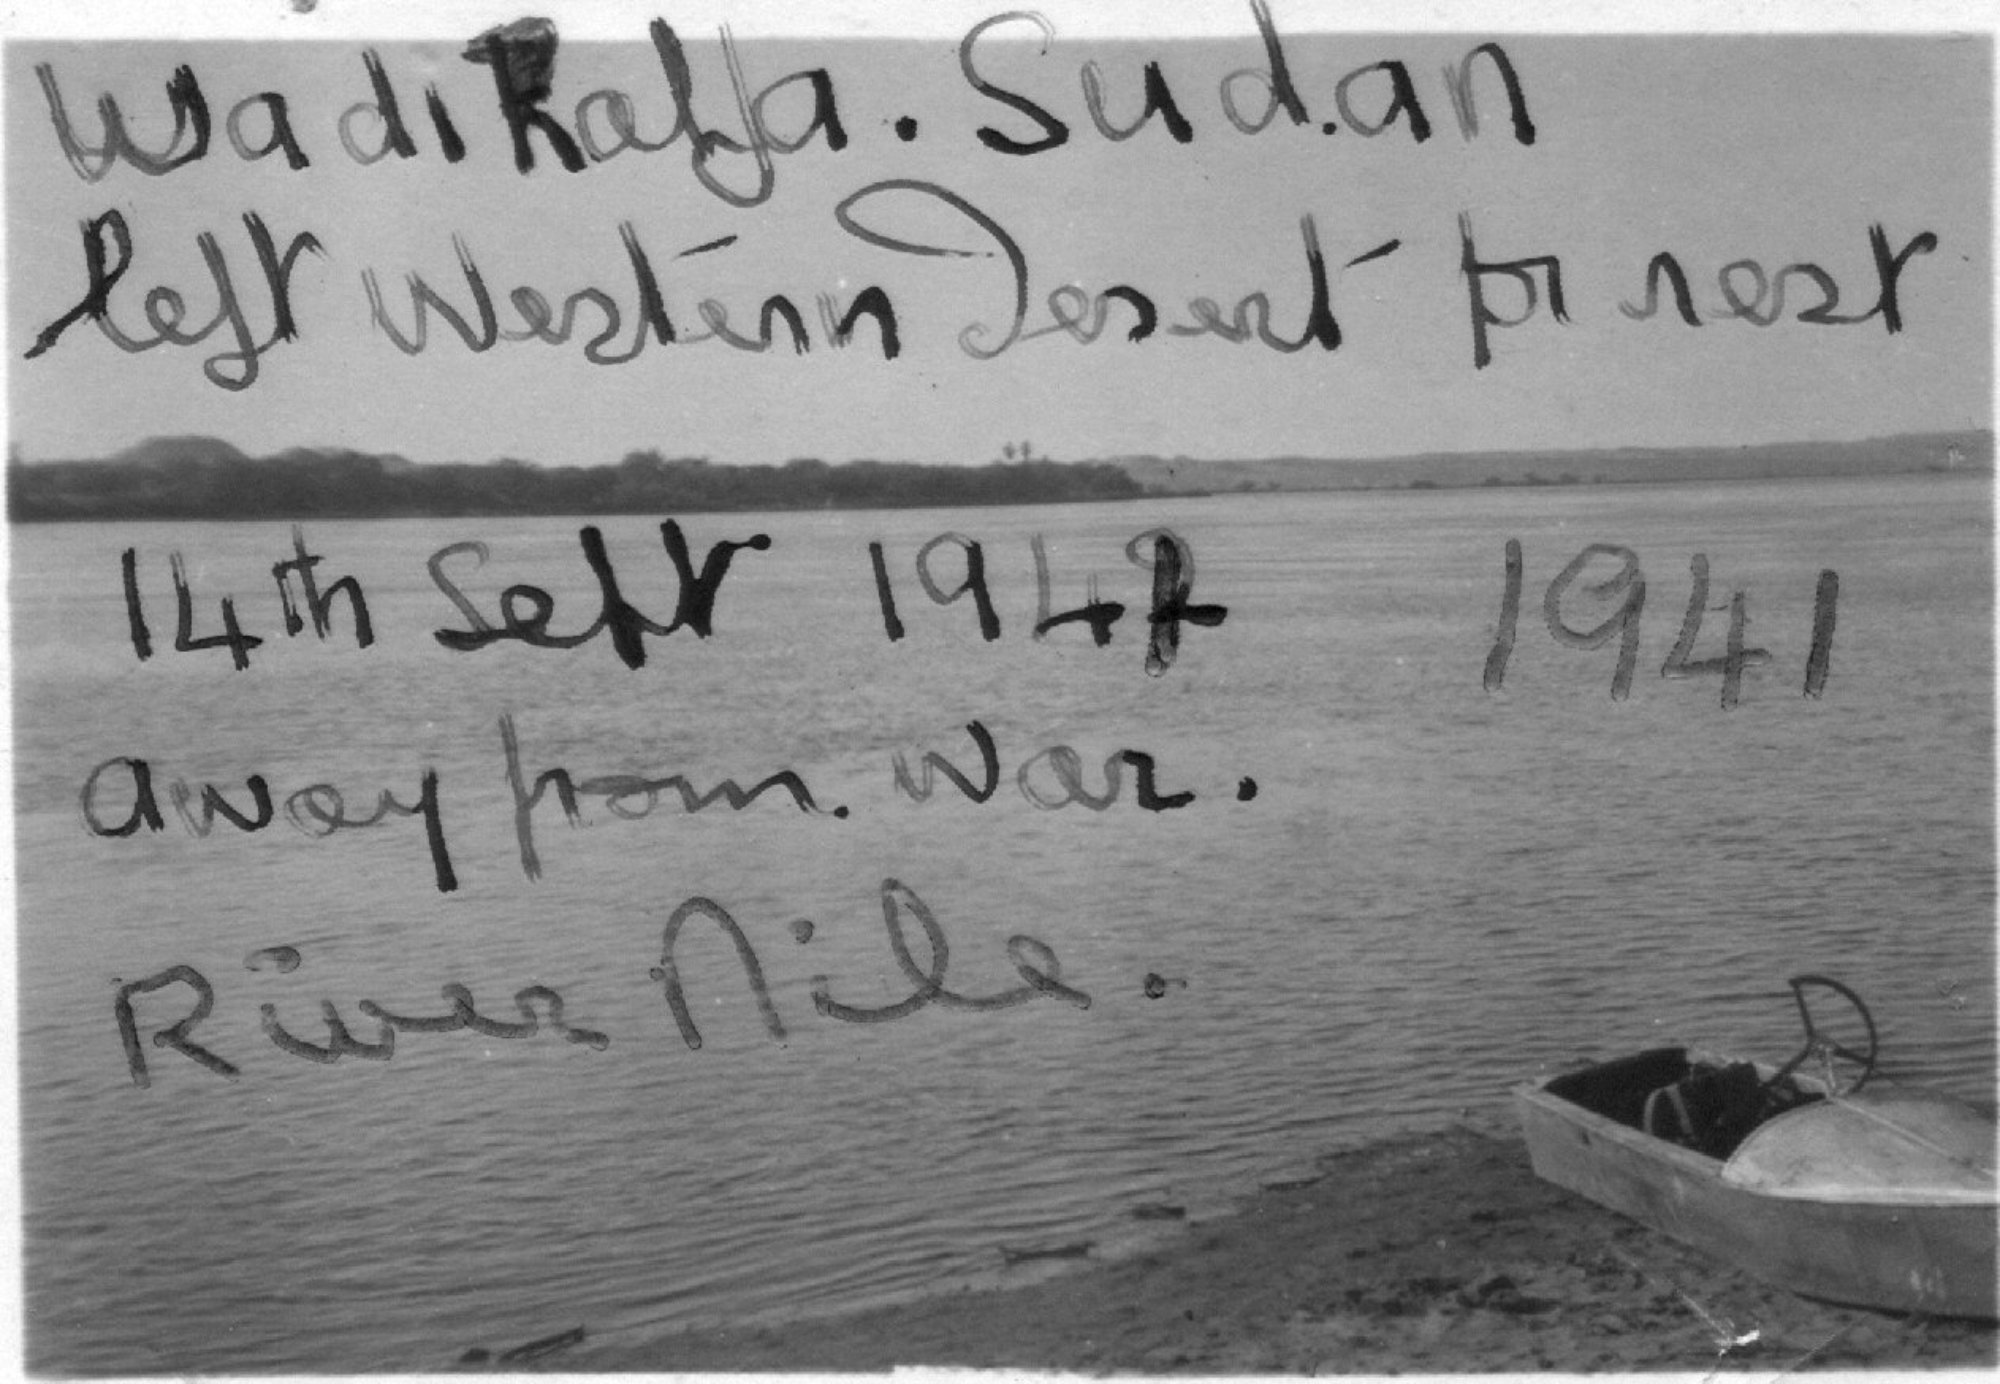 Wadi Halfa. Sudan
left Western Desert for rest
14th Sept 194 1941
away from war.
River Nile.